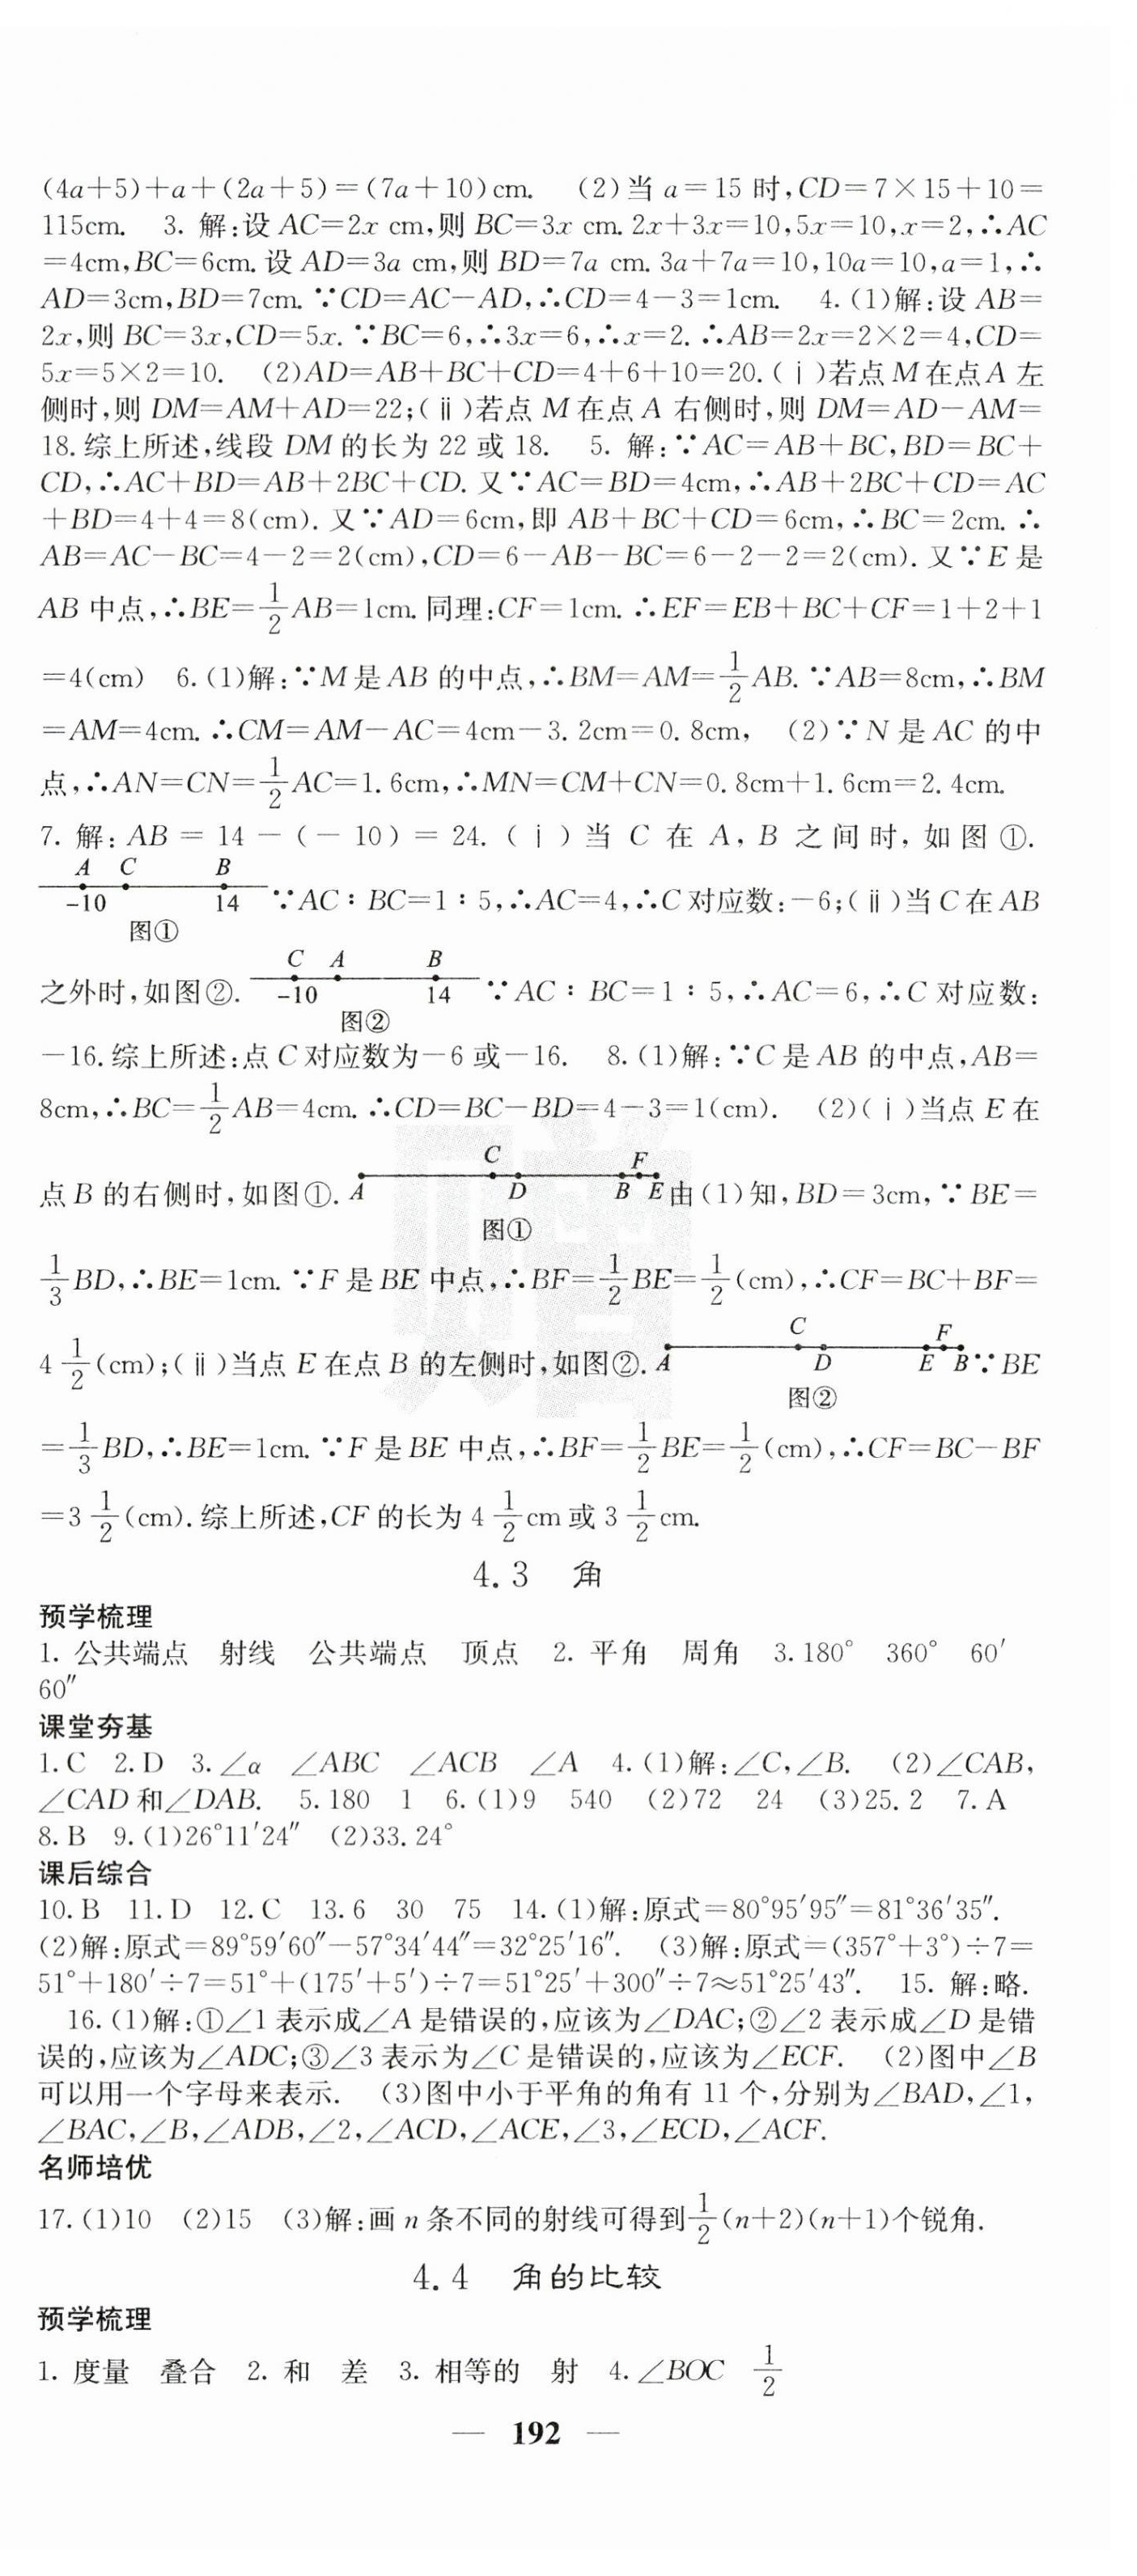 (4a+5)+a+(2a+5)=(7a+10)cm. (2)当 a=15 时,CD=7×15+10=
115cm. 3. 解:设 AC=2x cm,则 BC=3x cm. 2x+3x=10,5x=10,x=2,∴AC
=4cm,BC=6cm. 设 AD=3a cm,则 BD=7a cm. 3a+7a=10,10a=10,a=1,∴
AD=3cm,BD=7cm. ∵CD=AC-AD,∴CD=4-3=1cm. 4. (1)解:设 AB=
2x,则 BC=3x,CD=5x. ∵BC=6,∴3x=6,∴x=2. ∴AB=2x=2×2=4,CD=
5x=5×2=10. (2)AD=AB+BC+CD=4+6+10=20. (ⅰ)若点 M 在点 A 左
侧时,则 DM=AM+AD=22;(ⅱ)若点 M 在点 A 右侧时,则 DM=AD-AM=
18. 综上所述,线段 DM 的长为 22 或 18. 5. 解:∵AC=AB+BC,BD=BC+
CD,∴AC+BD=AB+2BC+CD. 又∵AC=BD=4cm,∴AB+2BC+CD=AC
+BD=4+4=8(cm). 又∵AD=6cm,即 AB+BC+CD=6cm,∴BC=2cm. ∴
AB=AC-BC=4-2=2(cm),CD=6-AB-BC=6-2-2=2(cm). 又∵E 是
AB 中点,∴BE=1/2AB=1cm. 同理:CF=1cm. ∴EF=EB+BC+CF=1+2+1
=4(cm) 6. (1)解:∵M 是 AB 的中点,∴BM=AM=1/2AB. ∵AB=8cm,∴BM
=AM=4cm. ∴CM=AM-AC=4cm-3.2cm=0.8cm, (2)∵N 是 AC 的中
点,∴AN=CN=1/2AC=1.6cm,∴MN=CM+CN=0.8cm+1.6cm=2.4cm.
7. 解: AB = 14 - (- 10) = 24. (ⅰ) 当 C 在 A, B 之间时, 如图 ①.
A C B
-10 14 ∵AC∶BC=1∶5,∴AC=4,∴C 对应数:-6;(ⅱ)当 C 在 AB
图①
C A B
之外时,如图②. -10 14 ∵AC∶BC=1∶5,∴AC=6,∴C 对应数:
图②
-16. 综上所述:点 C 对应数为-6 或-16. 8. (1)解:∵C 是 AB 的中点,AB=
8cm,∴BC=1/2AB=4cm. ∴CD=BC-BD=4-3=1(cm). (2)(ⅰ)当点 E 在
C F
点 B 的右侧时,如图①. A D B E 由(1)知,BD=3cm,∵BE=
图①
1/3BD,∴BE=1cm. ∵F 是 BE 中点,∴BF=1/2BE=1/2(cm),∴CF=BC+BF=
C F
4 1/2(cm);(ⅱ)当点 E 在点 B 的左侧时,如图②. A D E B ∵BE
图②
=1/3BD,∴BE=1cm. ∵F 是 BE 中点,∴BF=1/2BE=1/2(cm),∴CF=BC-BF
=3 1/2(cm). 综上所述,CF 的长为 4 1/2cm 或 3 1/2cm.
4.3 角
预学梳理
1. 公共端点 射线 公共端点 顶点 2. 平角 周角 3. 180° 360° 60′
60″
课堂夯基
1. C 2. D 3. ∠α ∠ABC ∠ACB ∠A 4. (1)解:∠C,∠B. (2)∠CAB,
∠CAD 和∠DAB. 5. 180 1 6. (1)9 540 (2)72 24 (3)25.2 7. A
8. B 9. (1)26°11′24″ (2)33.24°
课后综合
10. B 11. D 12. C 13. 6 30 75 14. (1)解:原式=80°95′95″=81°36′35″.
(2)解:原式=89°59′60″-57°34′44″=32°25′16″. (3)解:原式=(357°+3°)÷7=
51°+180′÷7=51°+(175′+5′)÷7=51°25′+300″÷7≈51°25′43″. 15. 解:略.
16. (1)解:①∠1 表示成∠A 是错误的,应该为∠DAC;②∠2 表示成∠D 是错
误的,应该为∠ADC;③∠3 表示为∠C 是错误的,应该为∠ECF. (2)图中∠B
可以用一个字母来表示. (3)图中小于平角的角有 11 个,分别为∠BAD,∠1,
∠BAC,∠B,∠ADB,∠2,∠ACD,∠ACE,∠3,∠ECD,∠ACF.
名师培优
17. (1)10 (2)15 (3)解:画 n 条不同的射线可得到1/2(n+2)(n+1)个锐角.
4.4 角的比较
预学梳理
1. 度量 叠合 2. 和 差 3. 相等的 射 4. ∠BOC 1/2
— 192 —